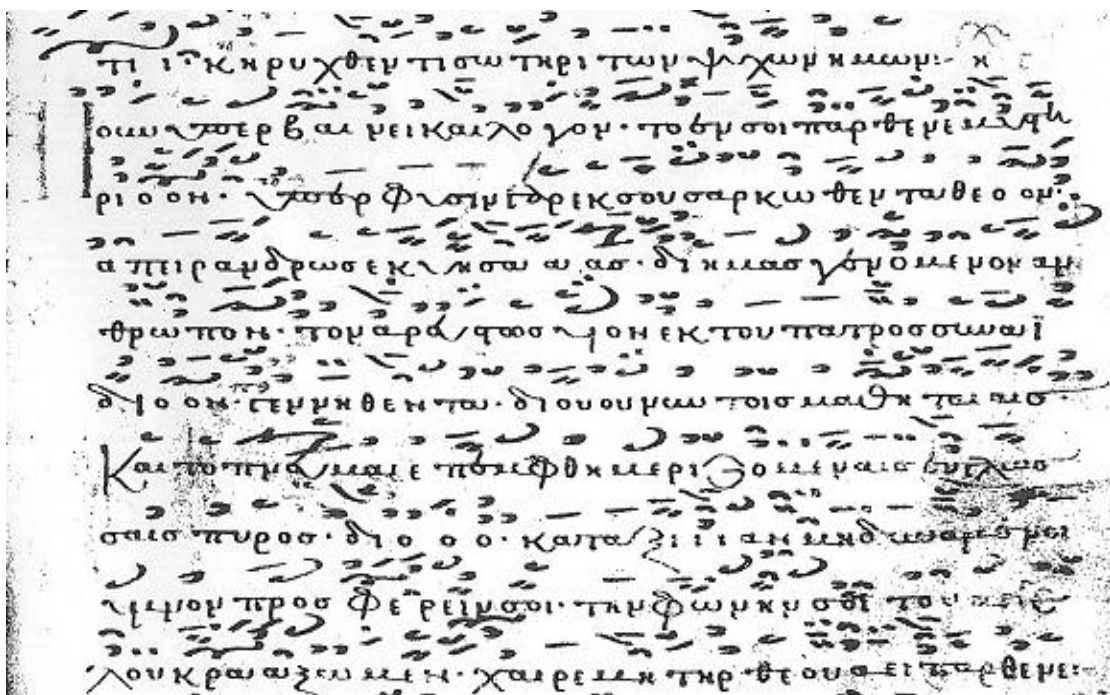 τι ι· κηρυχθεντι σωτηρι των ψυχων ημων:·
ουν υπερβαι νει και λο γον· το εν σοι παρθενε μυστη
ριοον· υπερ φυσιν σαρκωθεντα θεοον·
απειρανδρως εκυησα α ας· δι ημας γενομενον αν
θρωπον· τον υιον εκ του πατρος συναϊ
διοον· γεννηθεντα· τοις μαθη ταιαις·
Και το πνα επεμφθη μεριζομεναις εν γλωσ
σαις πυρος· διο ο ο· καταξιιιαν μη δυναμενοι
υμνον προσ φε ρειν σοι· την φωνην σοι του
λου κρααζωμεν· χαιρε μητηρ θεου αειπαρθενε:-